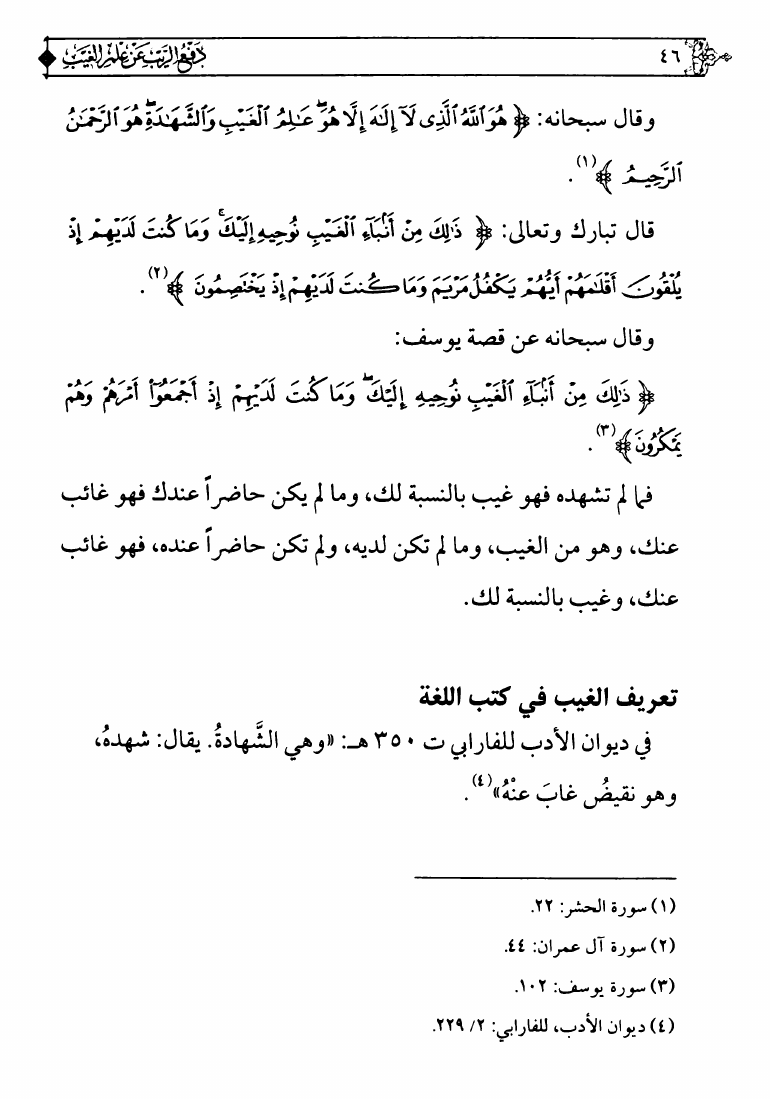 ٤٦
دفع الريب عن علم الغيب
وقال سبحانه: ﴿ هُوَ ٱللَّهُ ٱلَّذِى لَآ إِلَـٰهَ إِلَّا هُوَ ۖ عَـٰلِمُ ٱلْغَيْبِ وَٱلشَّهَـٰدَةِ ۖ هُوَ ٱلرَّحْمَـٰنُ
ٱلرَّحِيمُ ﴾(١).
قال تبارك وتعالى: ﴿ ذَٰلِكَ مِنْ أَنۢبَآءِ ٱلْغَيْبِ نُوحِيهِ إِلَيْكَ ۚ وَمَا كُنتَ لَدَيْهِمْ إِذْ
يُلْقُونَ أَقْلَـٰمَهُمْ أَيُّهُمْ يَكْفُلُ مَرْيَمَ وَمَا كُنتَ لَدَيْهِمْ إِذْ يَخْتَصِمُونَ ﴾(٢).
وقال سبحانه عن قصة يوسف:
﴿ ذَٰلِكَ مِنْ أَنۢبَآءِ ٱلْغَيْبِ نُوحِيهِ إِلَيْكَ ۖ وَمَا كُنتَ لَدَيْهِمْ إِذْ أَجْمَعُوٓا۟ أَمْرَهُمْ وَهُمْ
يَمْكُرُونَ ﴾(٣).
فما لم تشهده فهو غيب بالنسبة لك، وما لم يكن حاضراً عندك فهو غائب
عنك، وهو من الغيب، وما لم تكن لديه، ولم تكن حاضراً عنده، فهو غائب
عنك، وغيب بالنسبة لك.
تعريف الغيب في كتب اللغة
في ديوان الأدب للفارابي ت ٣٥٠ هـ: «وهي الشَّهادةُ. يقال: شهدهُ،
وهو نقيضُ غابَ عنْهُ»(٤).
(١) سورة الحشر: ٢٢.
(٢) سورة آل عمران: ٤٤.
(٣) سورة يوسف: ١٠٢.
(٤) ديوان الأدب، للفارابي: ٢/ ٢٢٩.